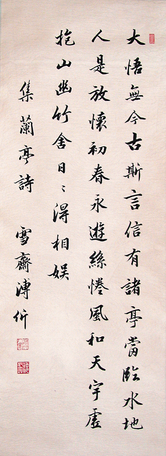 大悟無今古斯言信有諸亭當臨水地
人是放懷初春永遊絲惓風和天宇虛
抱山幽竹舍日〻得相娛
集蘭亭詩 雪齋溥伒